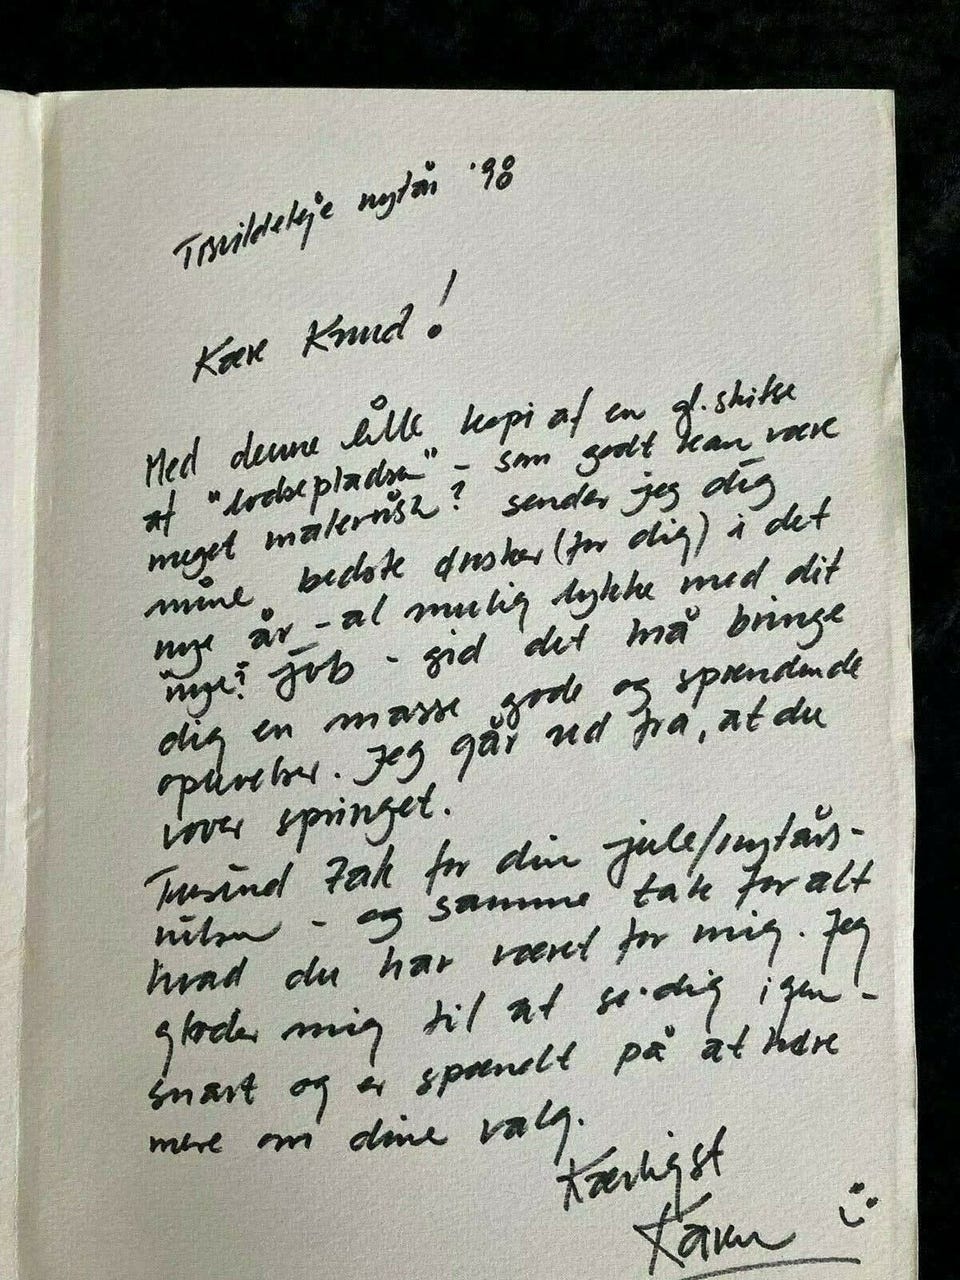 Tisvildeleje nytår '98
Kære Knud!
Med denne lille kopi af en gl. skitse
af "lodsepladsen" - som godt kan være
meget malerisk? sender jeg dig
mine bedste ønsker (for dig) i det
nye år - al mulig lykke med dit
nye? job - gid det må bringe
dig en masse gode og spændende
oplevelser. Jeg går ud fra, at du
vover springet.
Tusind tak for din jule/nytårs-
hilsen - og samme tak for alt
hvad du har været for mig. Jeg
glæder mig til at se dig igen -
snart og er spændt på at høre
mere om dine valg.
Kærligst
Karen